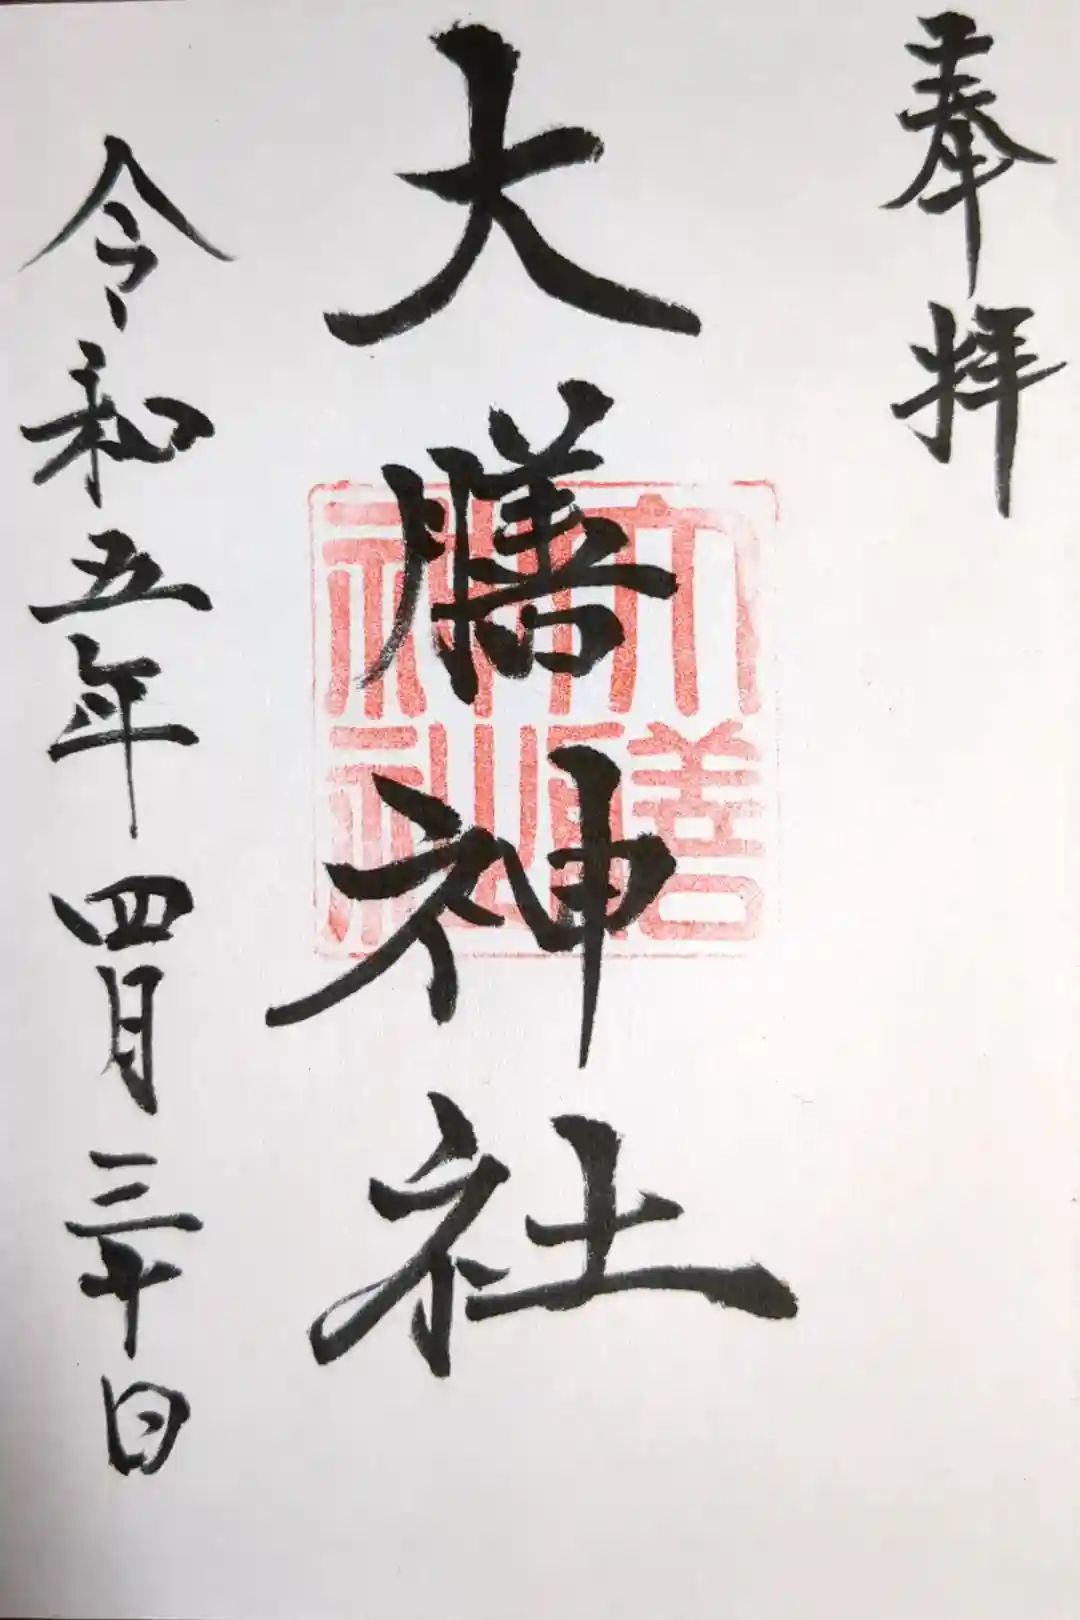 奉拝
大膳神社
大膳神社
令和五年四月三十日